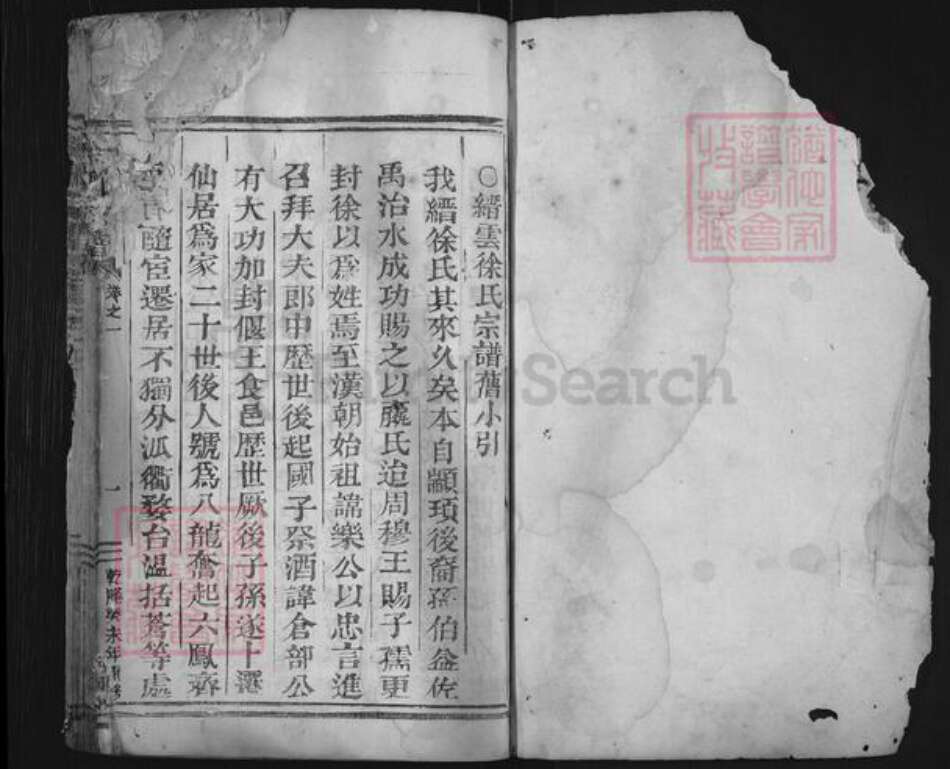 ○縉雲徐氏宗譜舊小引
我縉徐氏其來久矣本自顓頊後裔孫伯益佐
禹治水成功賜之以嬴氏迨周穆王賜子孺更
封徐以為姓焉至漢朝始祖諱樂公以忠言進
召拜大夫郎中歷世後起國子祭酒諱倉部公
有大功加封偃王食邑歷世厥後子孫遂卜遷
仙居為家二十世後人號為八龍奮起六鳳齊
隨宦遷居不獨分派衢婺台溫括蒼等處
卷之一
一
乾隆癸未年
Search
譜學會
收藏